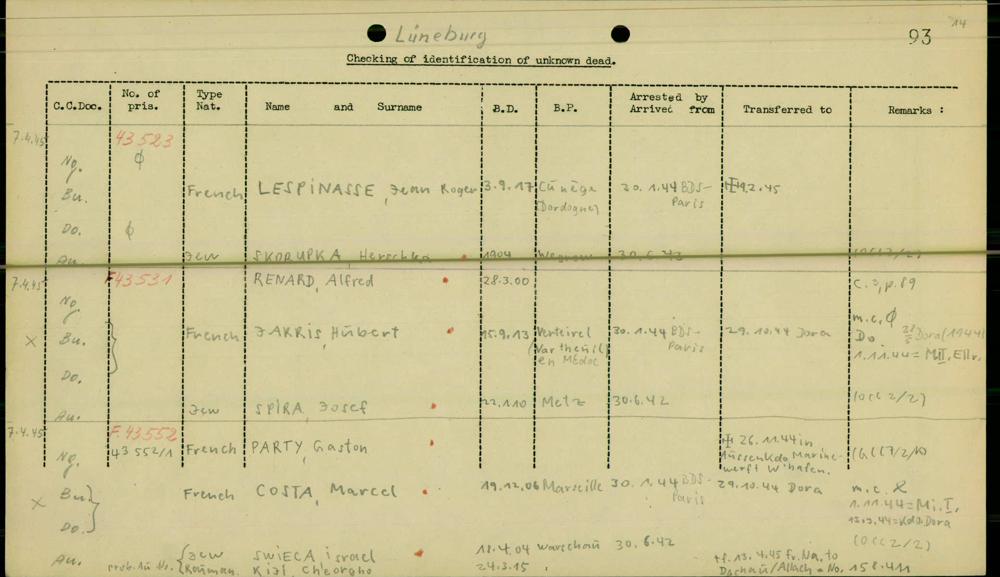 Lüneburg
93
14
Checking of identification of unknown dead.
C.C.Doc. No. of pris. Type Nat. Name and Surname B.D. B.P. Arrested by Arrived from Transferred to Remarks :
7.4.45 43523
Ng. ϕ
Bu. French LESPINASSE, Jean Roger 3.9.17 20.1.44 BDS-
(Dordogne) Paris
Do. ϕ
Au. Jew SKORUPKA, Herschko 1904 Wegrow 30.6.42 (OCC 2/2)
7.4.45 F43531 RENARD, Alfred 28.3.00 c. 3, p. 89
Ng. m.c. ϕ
x Bu. French JARRIS Hubert 15.9.13 Verteirel 30.1.44 BDS- 29.10.44 Dora Do. Dora (1944)
(Vartheuil) Paris 1.11.44 = MII, Ellr.
en Médoc
Do.
Au. Jew SPIRA, Josef Metz 30.6.42 (OCC 2/2)
7.4.45 F.43552
Ng. 43552/1 French PARTY, Gaston 26.11.44 in
Aussenkdo Marine-
werft W'hafen.
x Bu French COSTA, Marcel 19.12.06 Marseille 30.1.44 BDS- 29.10.44 Dora m.c.
Paris 1.11.44 = Mi. I.
Do. Kdo. Dora
Au. Jew SWIECA, israel 18.4.04 Warschau 30.6.42 (OCC 2/2)
prob. Au No. Rouman. Kizl, Cheorgho 24.3.15 tf. 13.4.45 fr. Na. to
Dachau/Allach = No. 158.411